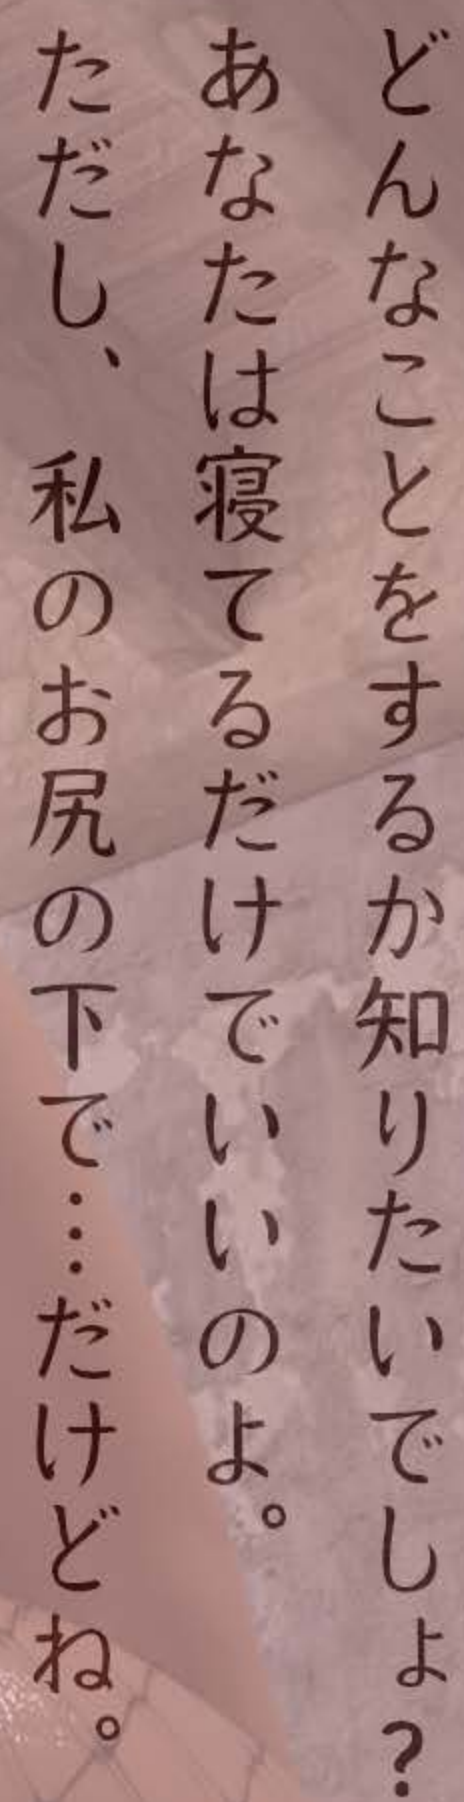 どんなことをするか知りたいでしょ?
あなたは寝てるだけでいいのよ。
ただし、私のお尻の下で…だけどね。